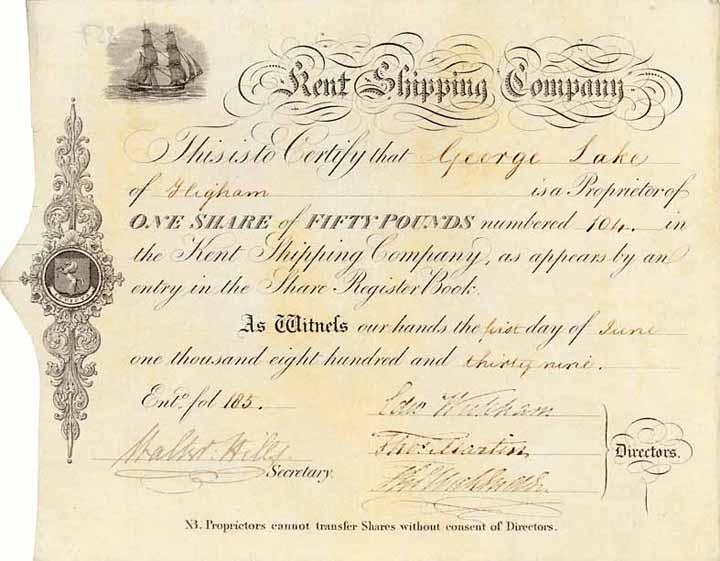 Kent Shipping Company
This is to Certify that George Lake
of Higham is a Proprietor of
ONE SHARE of FIFTY POUNDS numbered 104. in
the Kent Shipping Company, as appears by an
entry in the Share Register Book.
As Witness our hands the first day of June
one thousand eight hundred and thirty nine.
Entd. fol 185.
Thos. Martin
Secretary.
Directors.
NB. Proprietors cannot transfer Shares without consent of Directors.